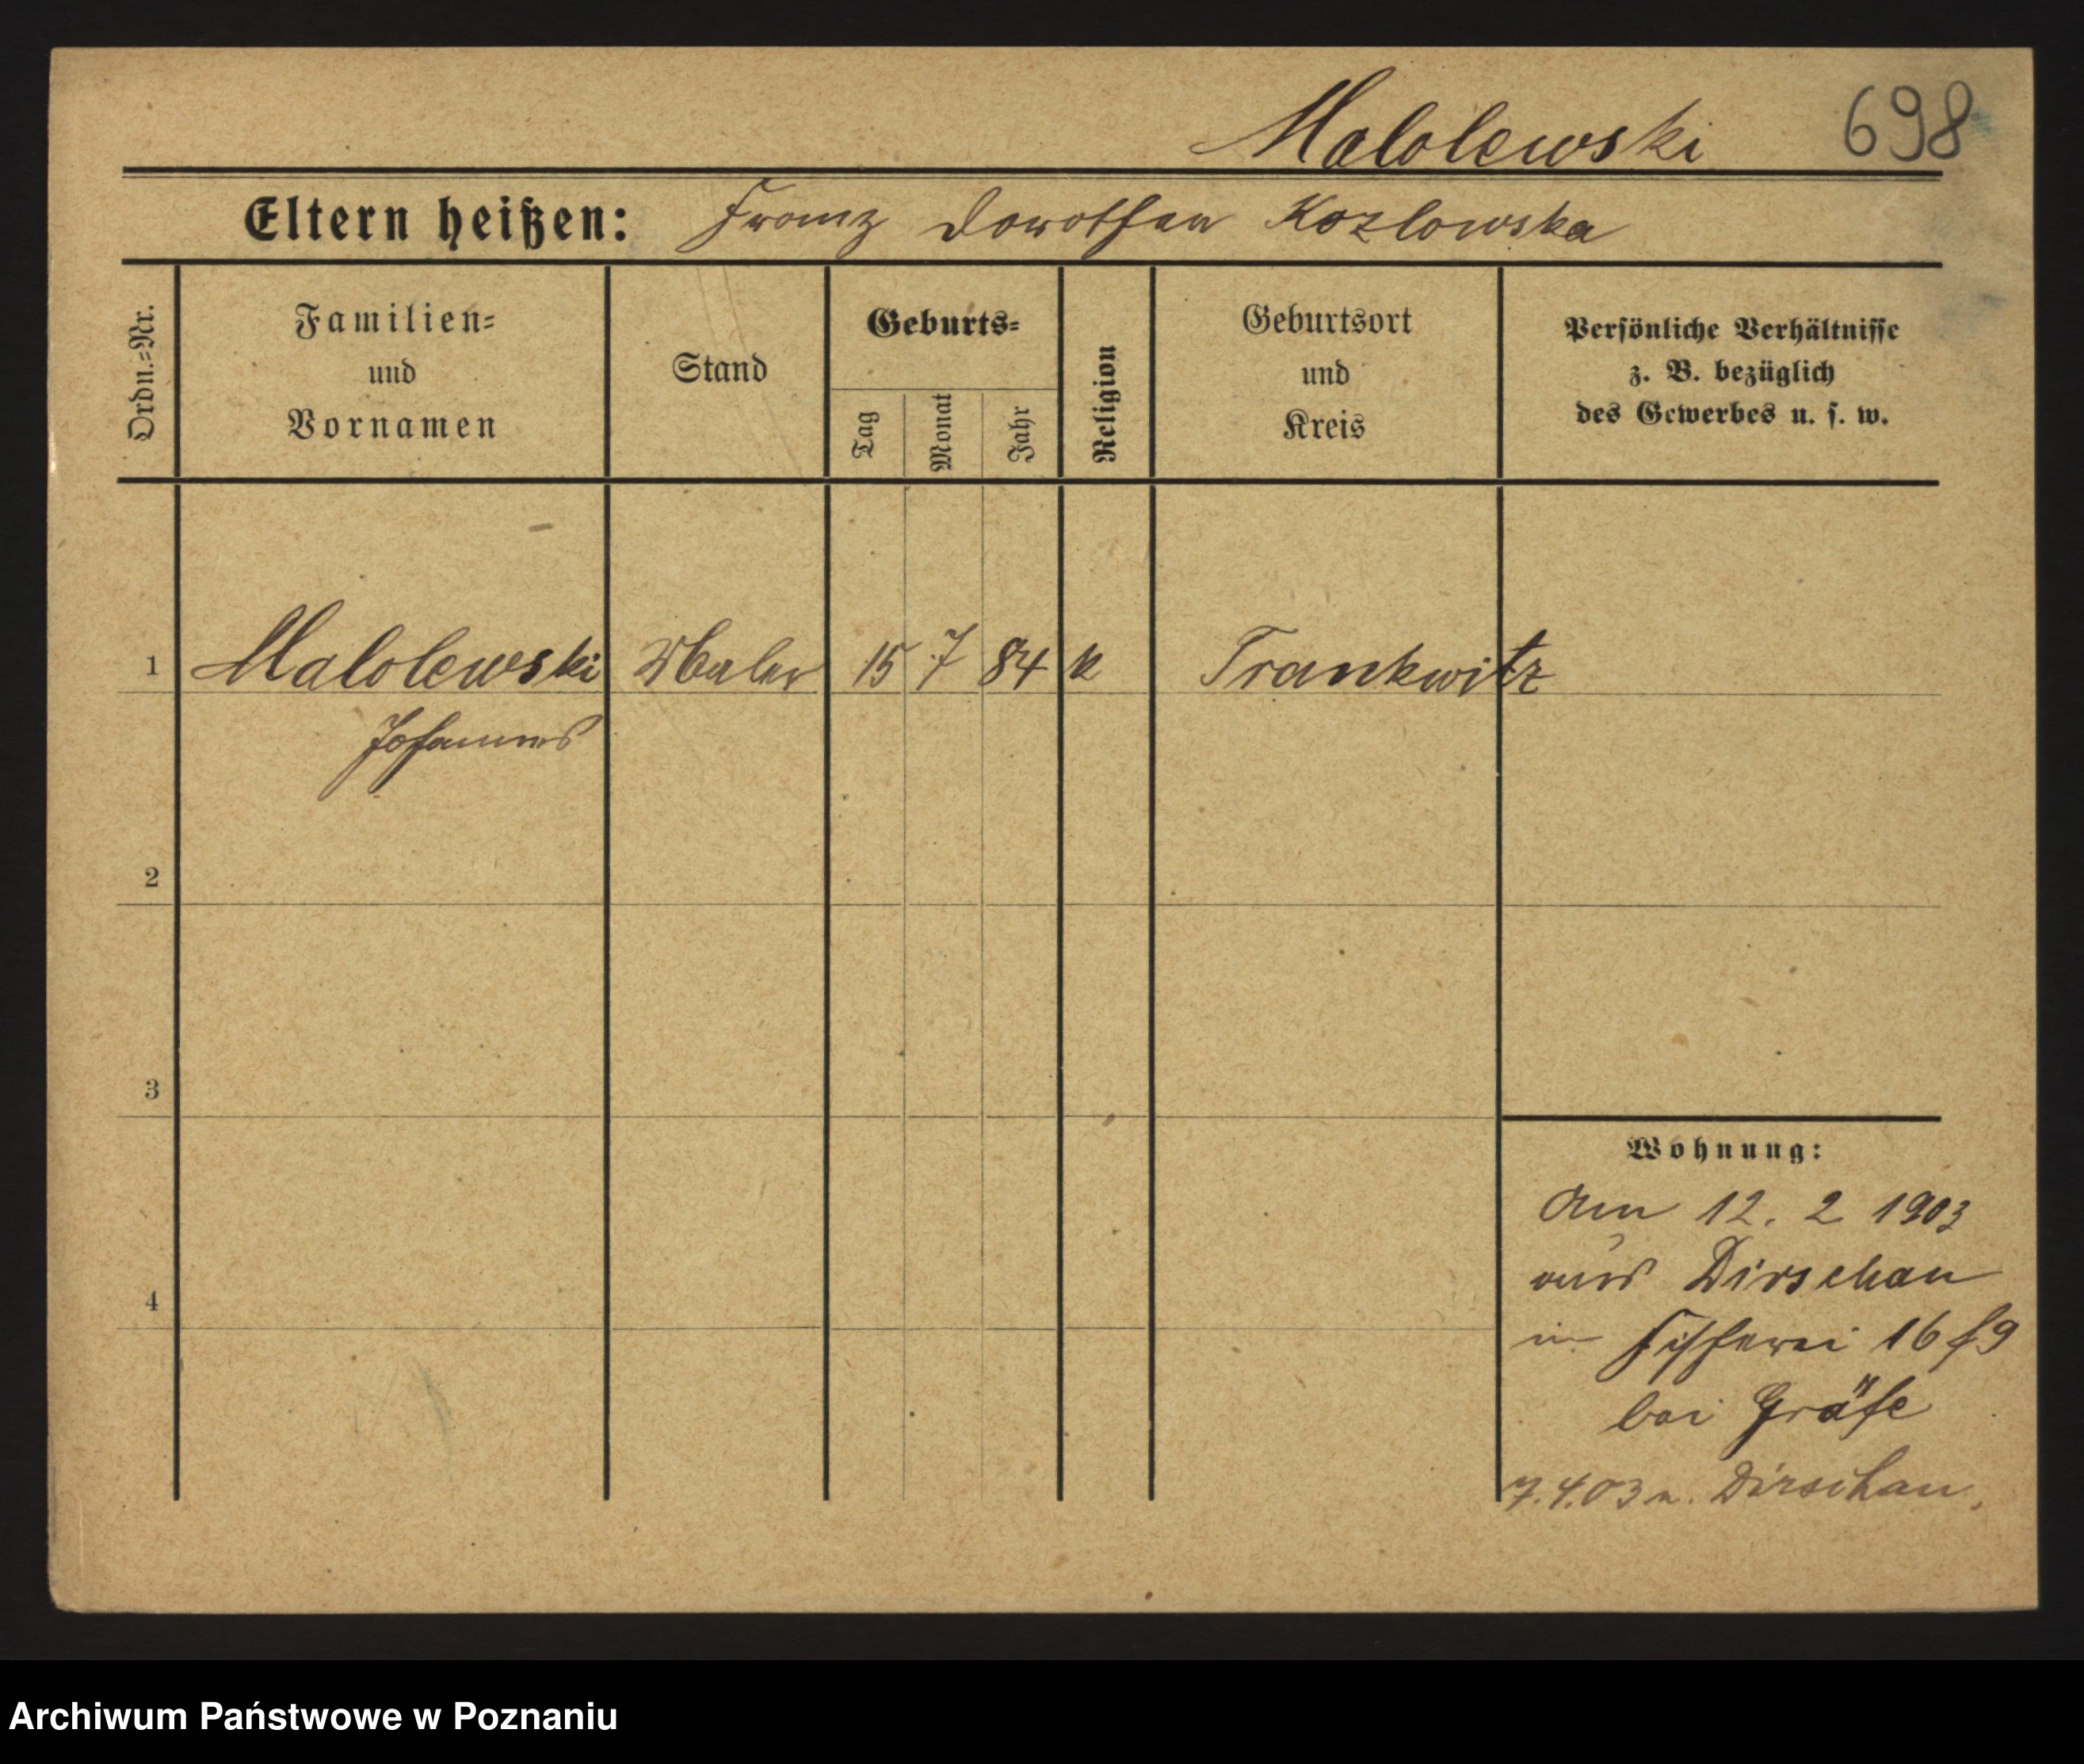 Malolewski 698
Eltern heißen: Franz Dorothea Kozlowska
Ordn.=Nr.
Familien=
und
Vornamen
Stand
Geburts=
Tag
Monat
Jahr
Religion
Geburtsort
und
Kreis
Persönliche Verhältnisse
z. B. bezüglich
des Gewerbes u. s. w.
1 Malolewski Maler 15 7 84 k Trankwitz
Johannes
2
3
4
Wohnung:
Am 12. 2 1903
aus Dirschau
in Fischerei 16
bei Gräfe
7.4.03 n. Dirschau.
Archiwum Państwowe w Poznaniu